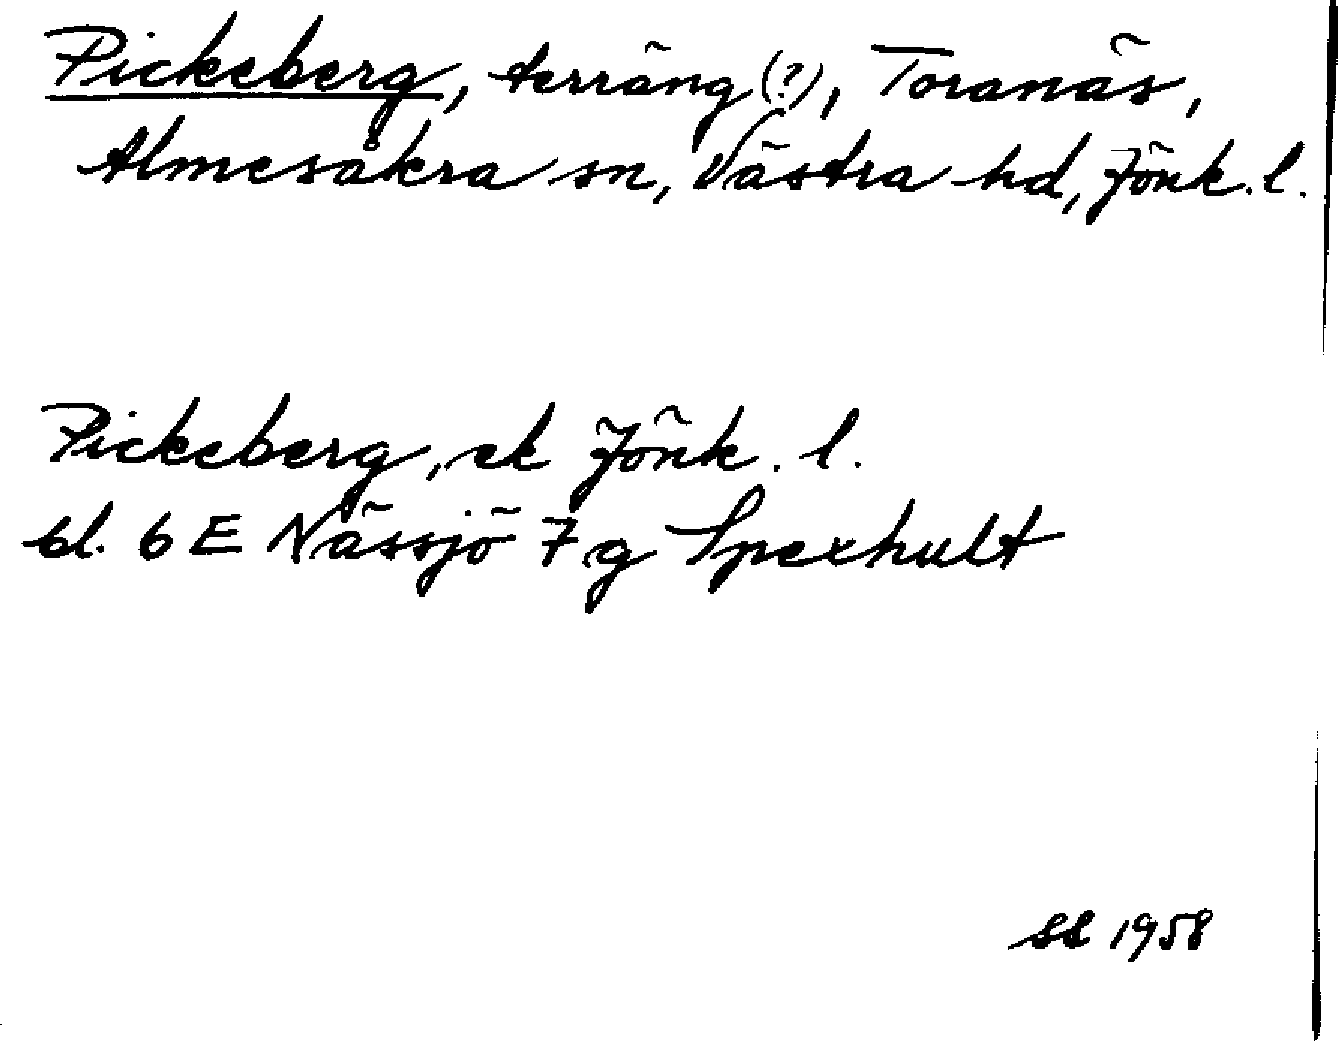 Pickeberg, terräng (?), Toranäs,
Almesåkra sn, Västra hd, Jönk. l.
Pickeberg, ek Jönk. l.
bl. 6 E Nässjö 7 g Spexhult
SL 1958